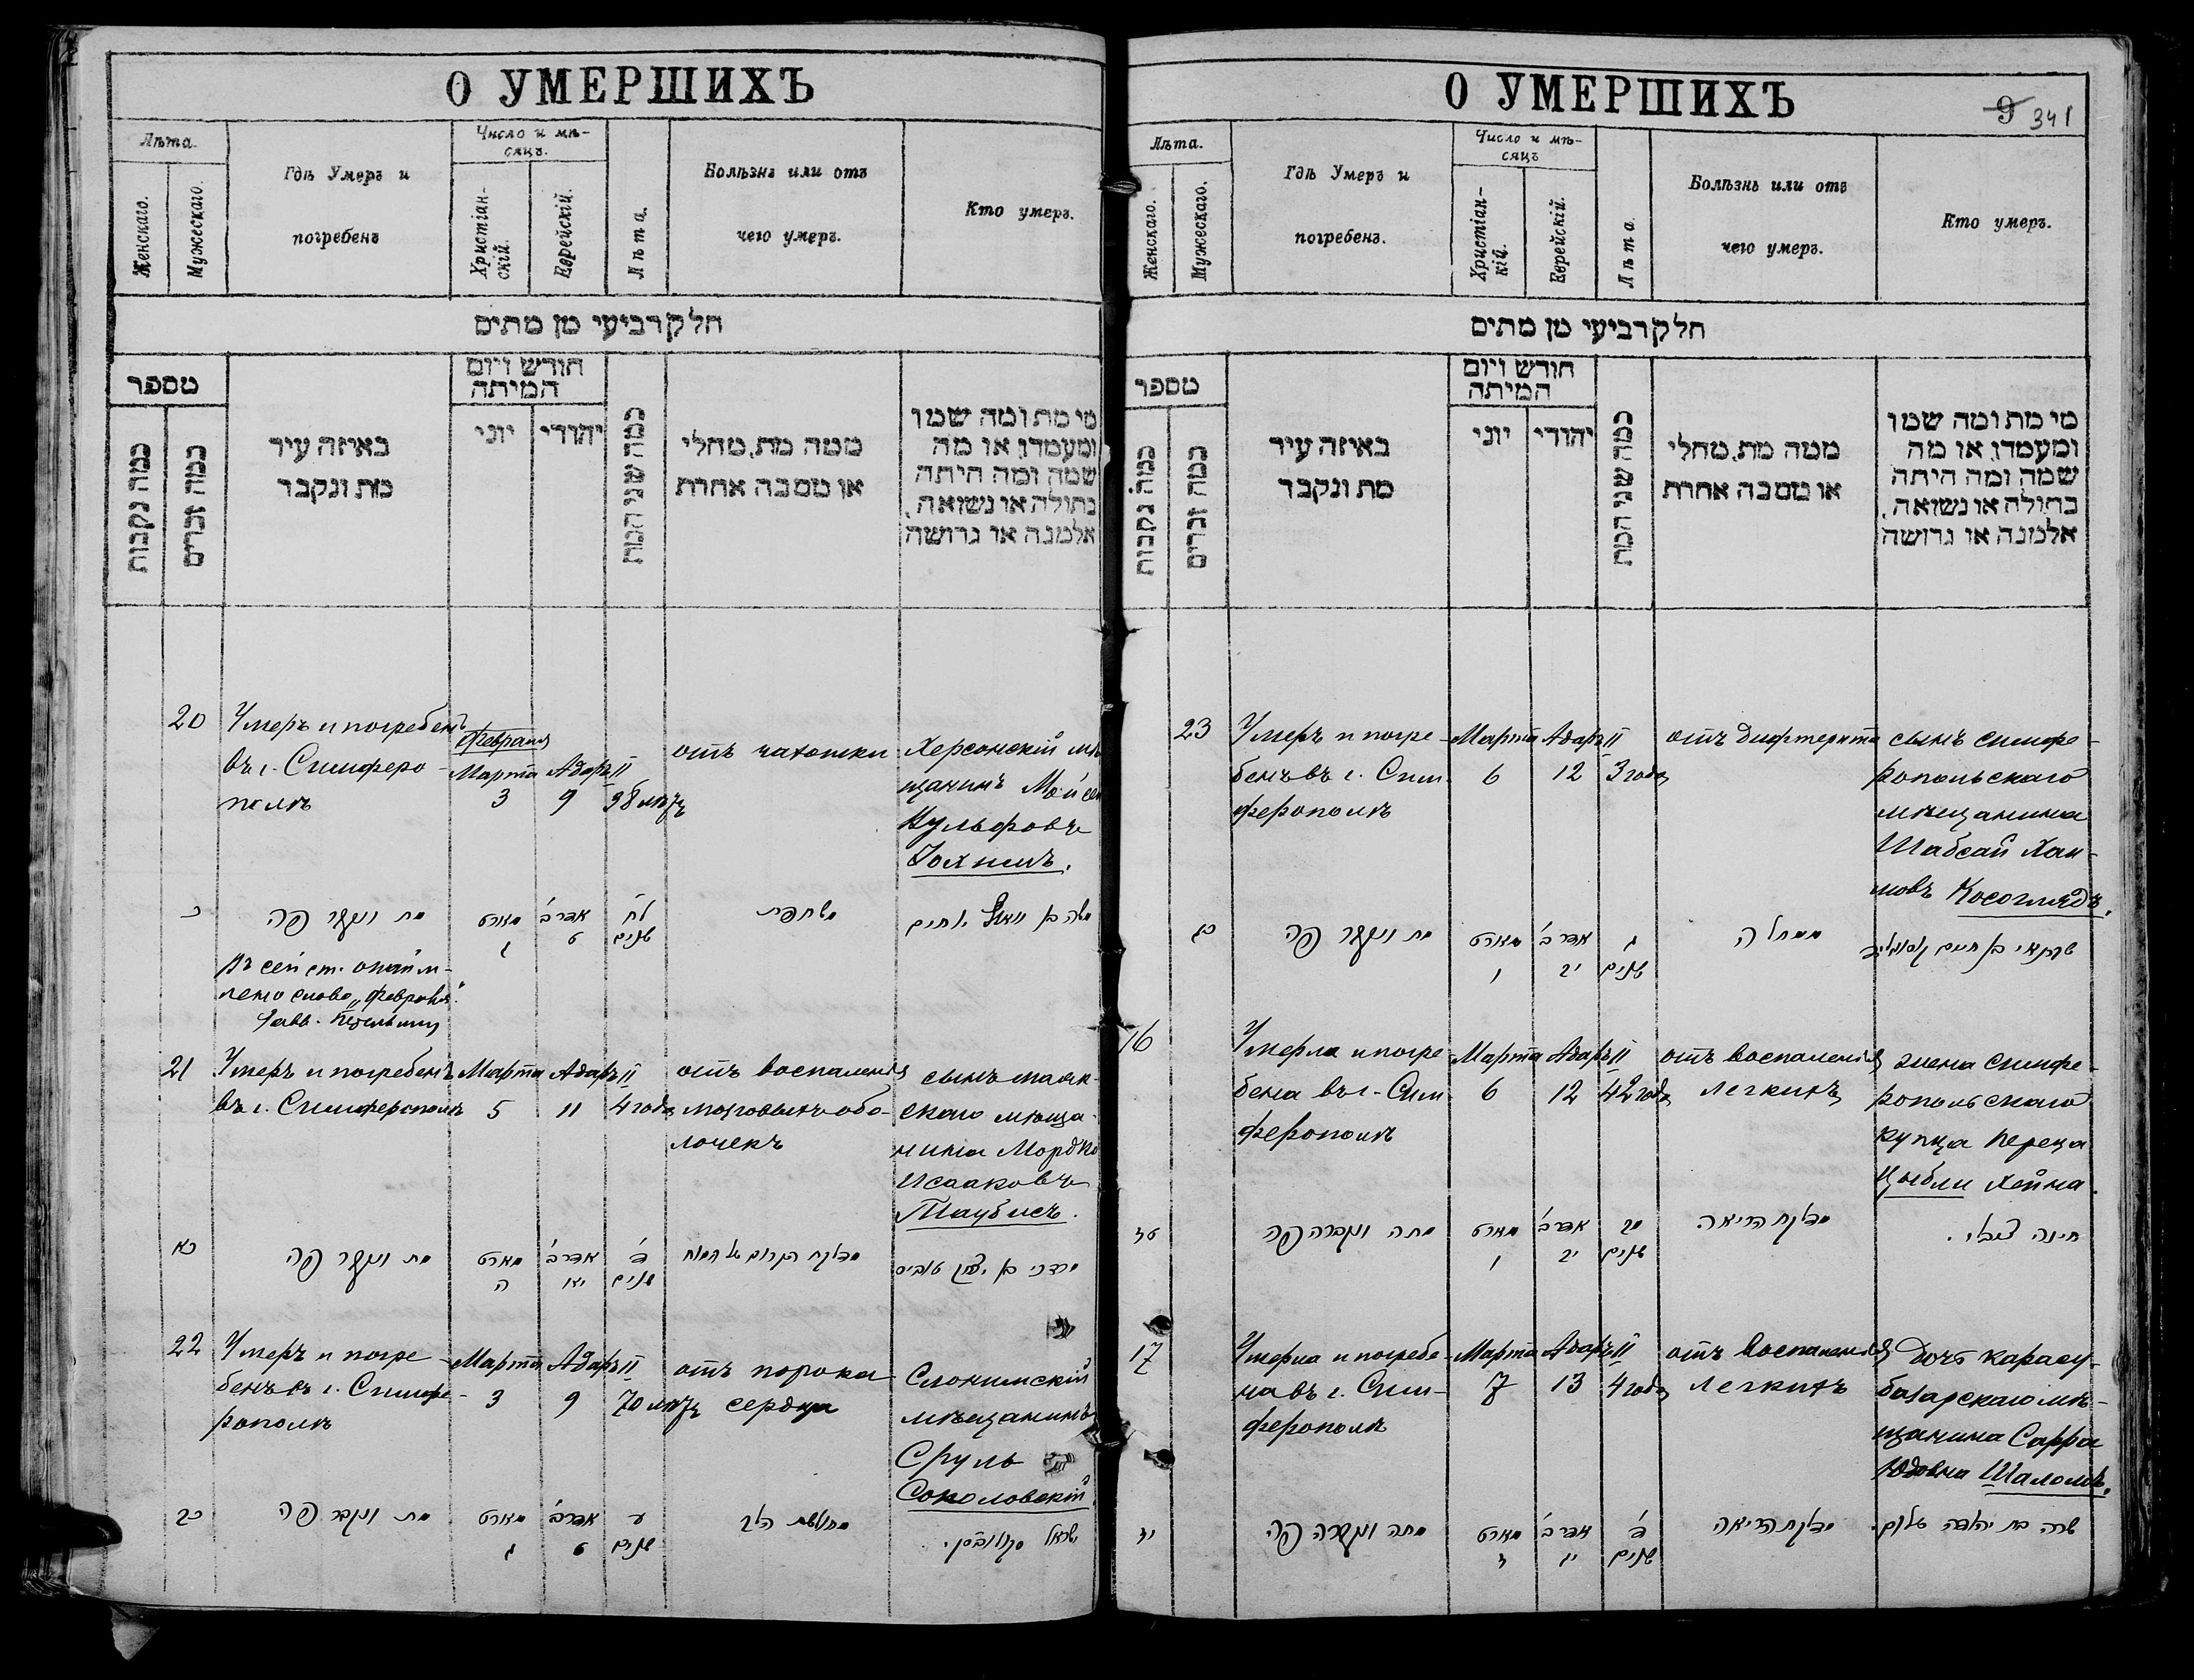 О УМЕРШИХЪ
Лѣта.
Женскаго.
Мужескаго.
Гдѣ Умеръ и
погребенъ
Число и мѣ-
сяцъ.
Христіан-
скій.
Еврейскій.
Лѣта.
Болѣзнь или отъ
чего умеръ.
Кто умеръ.
חלק רביעי מן מתים
מספר
כמה נקבות
כמה זכרים
באיזה עיר
מת ונקבר
חודש ויום
המיתה
יוני
יהודי
כמה שני המת
ממה מת, מחלי
או מסבה אחרת
מי מת ומה שמו
ומעמדו, או מה
שמה ומה היתה
בתולה או נשואה,
אלמנה או גרושה
20
Умеръ и погребенъ
въ г. Симферо-
полѣ
Февраля
Марта
3
Адаръ II
9
38 лѣтъ
отъ чахотки
Херсонскій мѣ
щанинъ Мойсей
Вульфовъ
כ
מת ונקבר פה
מארט
ג
אדר ב'
ט
לח
שנים
משחפת
Въ сей ст.
лено слово „Февраля".
21
Умеръ и погребенъ
въ г. Симферополѣ
Марта
5
Адаръ II
11
4 года
отъ воспаленія
мозговыхъ обо-
лочекъ
сынъ маяк-
скаго мѣща-
нина Мордко
Исааковъ
Таубисъ.
כא
מת ונקבר פה
מארט
ה
אדר ב'
יא
ד'
שנים
מדלקת הקרום של המוח
מרדכי בן יצחק טוביס
22
Умеръ и погре-
бенъ въ г. Симфе-
рополѣ
Марта
3
Адаръ II
9
70 лѣтъ
отъ порока
сердца
Слонимскій
мѣщанинъ
Сруль
Соколовскій
כב
מת ונקבר פה
מארט
ג
אדר ב'
ט
ע
שנים
מחולשת הלב
ישראל סקולובסקי.
О УМЕРШИХЪ
9 341
Лѣта.
Женскаго.
Мужескаго.
Гдѣ Умеръ и
погребенъ.
Число и мѣ-
сяцъ
Христіан-
кій.
Еврейскій.
Лѣта.
Болѣзнь или отъ
чего умеръ.
Кто умеръ.
חלק רביעי מן מתים
מספר
כמה נקבות
כמה זכרים
באיזה עיר
מת ונקבר
חודש ויום
המיתה
יוני
יהודי
כמה שני המת
ממה מת, מחלי
או מסבה אחרת
מי מת ומה שמו
ומעמדו, או מה
שמה ומה היתה
בתולה או נשואה,
אלמנה או גרושה
23
Умеръ и погре-
бенъ въ г. Сим-
ферополѣ
Марта
6
Адаръ II
12
3 года
отъ дифтерита
сынъ симфе-
ропольскаго
мѣщанина
Шабсай Хаи-
мовъ Косоглядъ.
כג
מת ונקבר פה
מארט
ו
אדר ב'
יב
ג
שנים
ממחלה
16
Умерла и погре-
бена въ г. Сим-
ферополѣ
Марта
6
Адаръ II
12
42 года
отъ воспаленія
легкихъ
жена симфе-
ропольскаго
купца Переца
Цыбли Хейна.
טז
מתה ונקברה פה
מארט
ו
אדר ב'
יב
מב
שנים
מדלקת הריאה
חינה ציבלי.
17
Умерла и погребе-
на въ г. Сим-
ферополѣ
Марта
7
Адаръ II
13
4 года
отъ воспаленія
легкихъ
дочь карасу-
базарскаго мѣ-
щанина Сарра
Юдовна Шаломъ.
יז
מתה ונקברה פה
מארט
ז
אדר ב'
יג
ד'
שנים
מדלקת הריאה
שרה בת יהודה שלום.